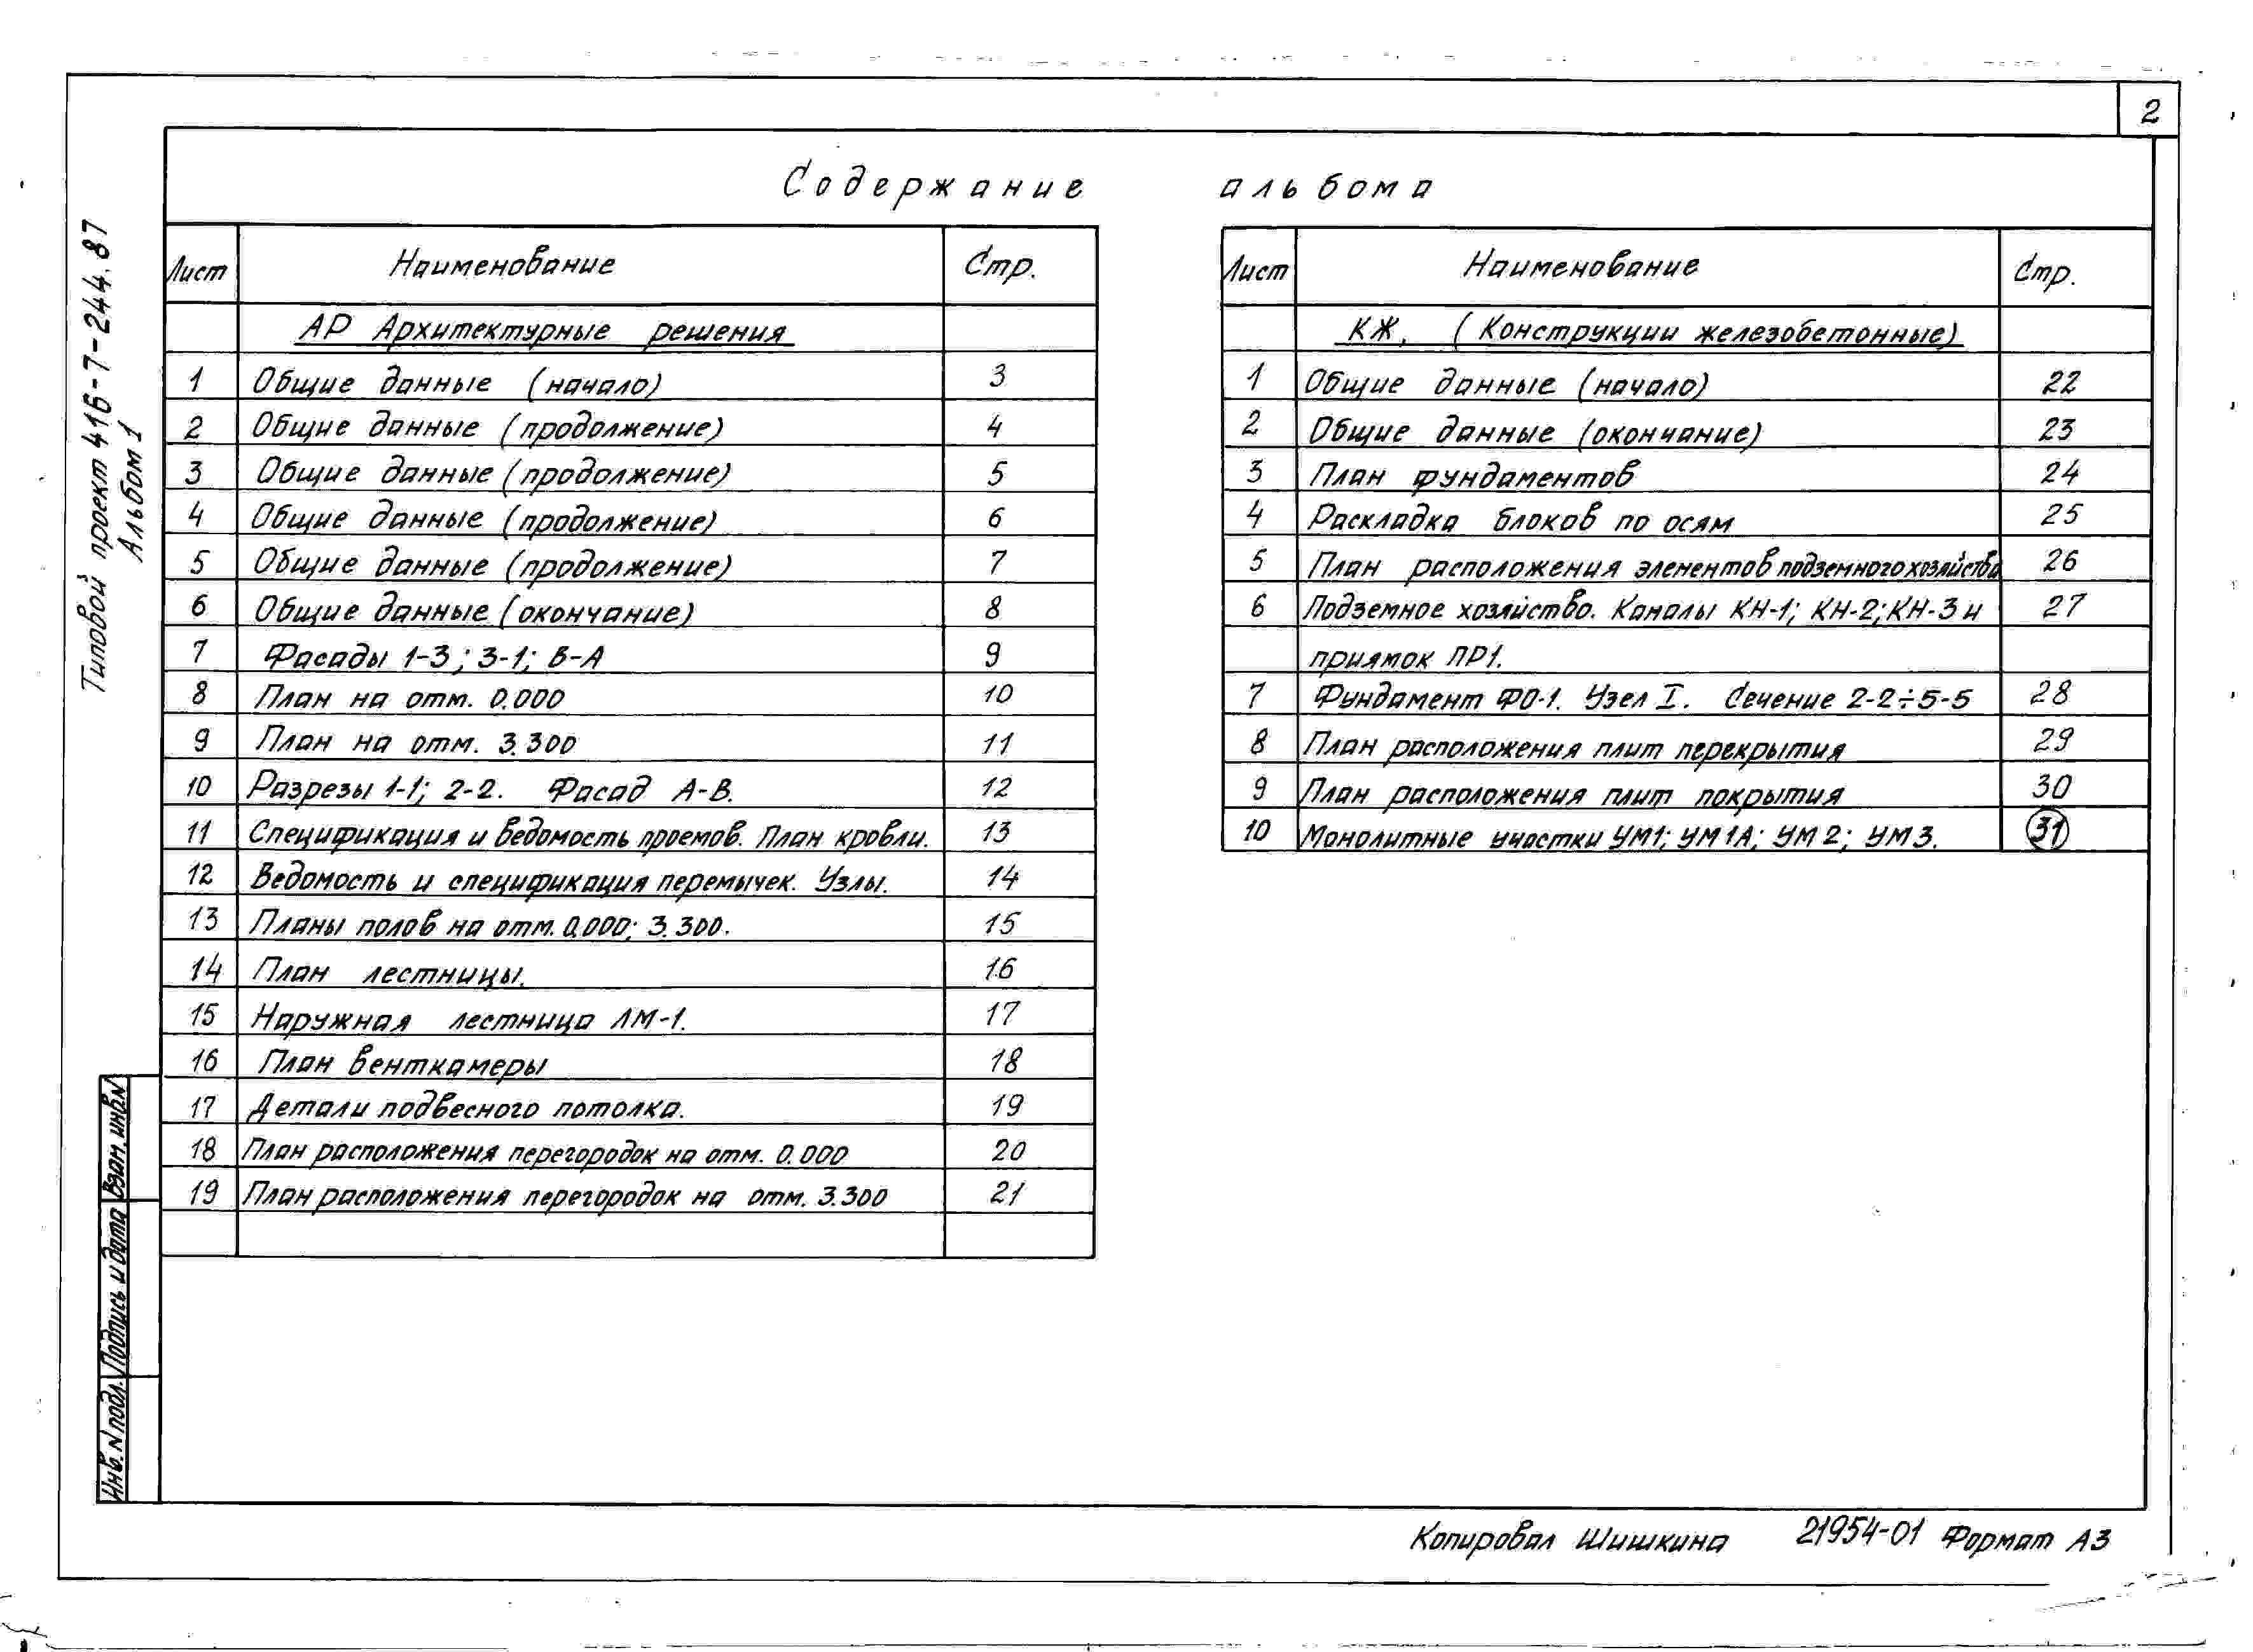 2
Содержание альбома
Типовой проект 416-7-244.87
Альбом 1
Лист Наименование Стр.
АР Архитектурные решения
1 Общие данные (начало) 3
2 Общие данные (продолжение) 4
3 Общие данные (продолжение) 5
4 Общие данные (продолжение) 6
5 Общие данные (продолжение) 7
6 Общие данные (окончание) 8
7 Фасады 1-3; 3-1; В-А 9
8 План на отм. 0.000 10
9 План на отм. 3.300 11
10 Разрезы 1-1; 2-2. Фасад А-В. 12
11 Спецификация и ведомость проемов. План кровли. 13
12 Ведомость и спецификация перемычек. Узлы. 14
13 Планы полов на отм. 0.000; 3.300. 15
14 План лестницы. 16
15 Наружная лестница ЛМ-1. 17
16 План венткамеры 18
17 Детали подвесного потолка. 19
18 План расположения перегородок на отм. 0.000 20
19 План расположения перегородок на отм. 3.300 21
Лист Наименование Стр.
КЖ, (Конструкции железобетонные)
1 Общие данные (начало) 22
2 Общие данные (окончание) 23
3 План фундаментов 24
4 Раскладка блоков по осям 25
5 План расположения элементов подземного хозяйства 26
6 Подземное хозяйство. Каналы КН-1; КН-2; КН-3 и 27
приямок ПР1.
7 Фундамент ФО-1. Узел I. Сечение 2-2÷5-5 28
8 План расположения плит перекрытия 29
9 План расположения плит покрытия 30
10 Монолитные участки УМ1; УМ1А; УМ2; УМ3. 31
Инв. N подл. Подпись и дата Взам. инв. N
Копировал Шишкина 21954-01 Формат А3